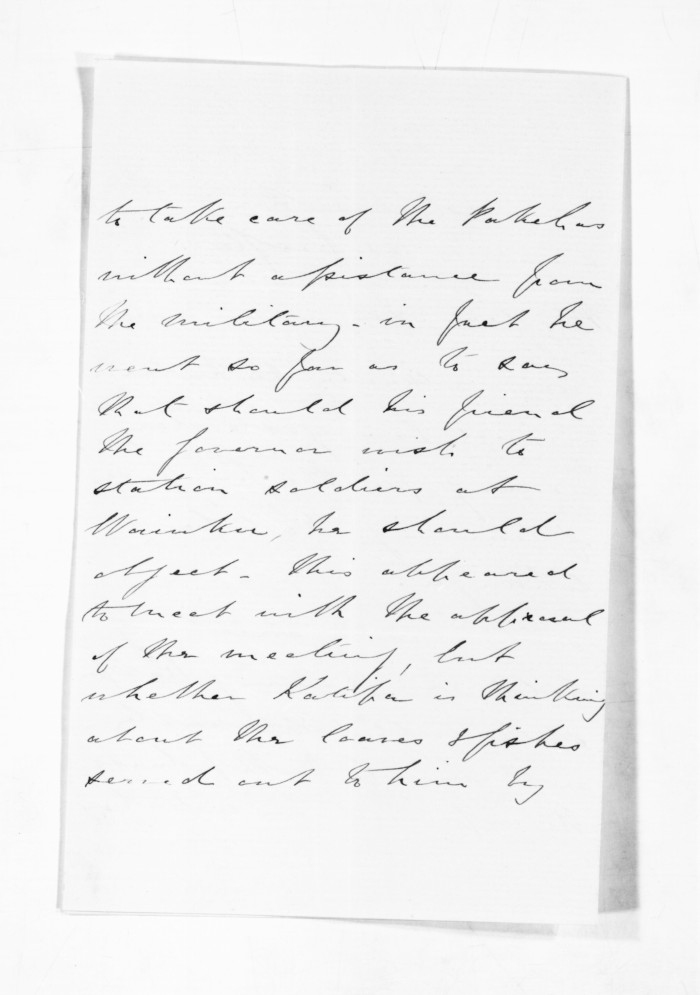 to take care of the Pakehas
without assistance from
the military - in fact he
went so far as to say
that should his friend
the Governor wish to
station soldiers at
Waiuku, he should
object - This appeared
to meet with the approval
of the meeting, but
whether Katipa is thinking
about the loaves & fishes
served out to him by